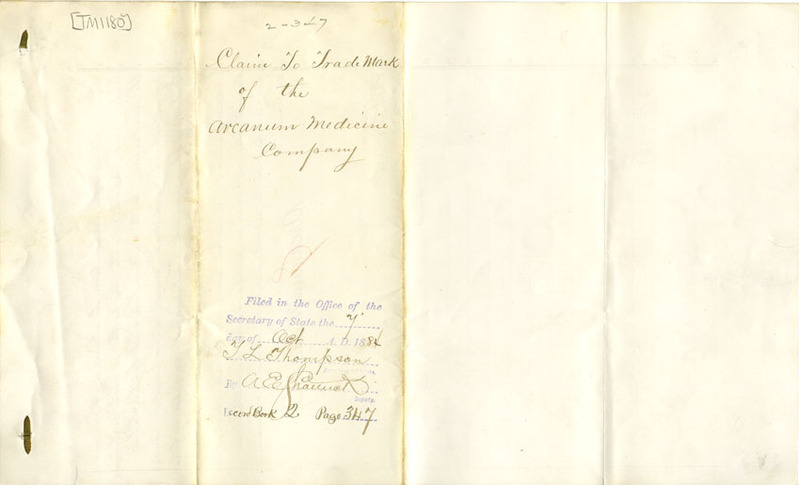 [TM1180]
2-347
Claim To Trade Mark
of the
Arcanum Medicine
Company
Filed in the Office of the
Secretary of State the 7
day of Oct A. D. 188
T L Thompson
By A E
Deputy.
Record Book 2 Page 347